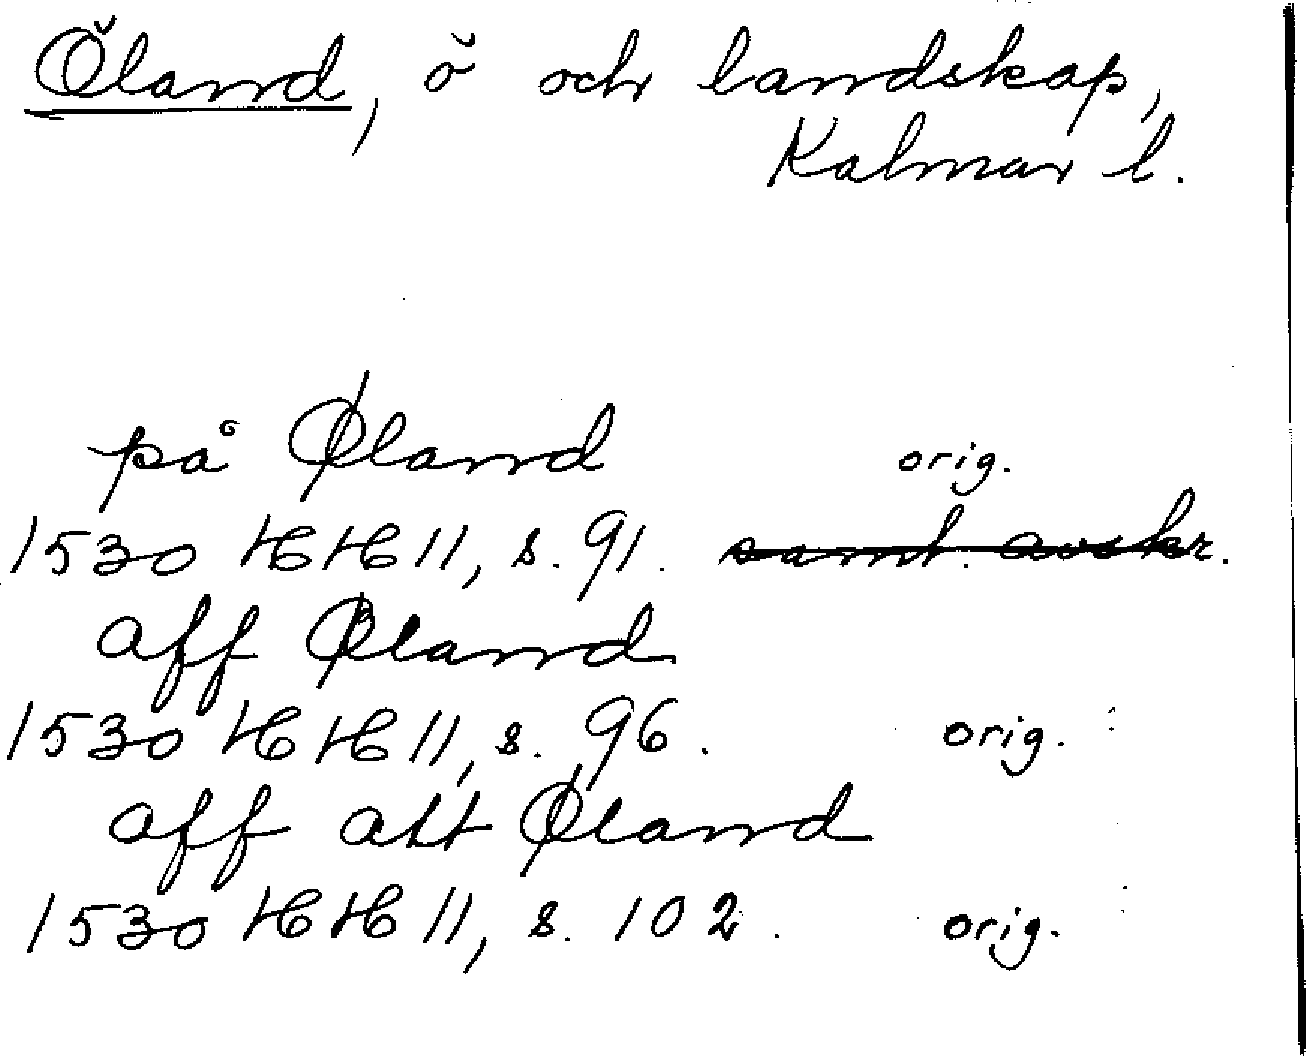 Öland, ö och landskap,
Kalmar l.
på Øland orig.
1530 HH 11, s. 91. samt. avskr.
aff Øland
1530 HH 11, s. 96. orig.
aff alt Øland
1530 HH 11, s. 102. orig.